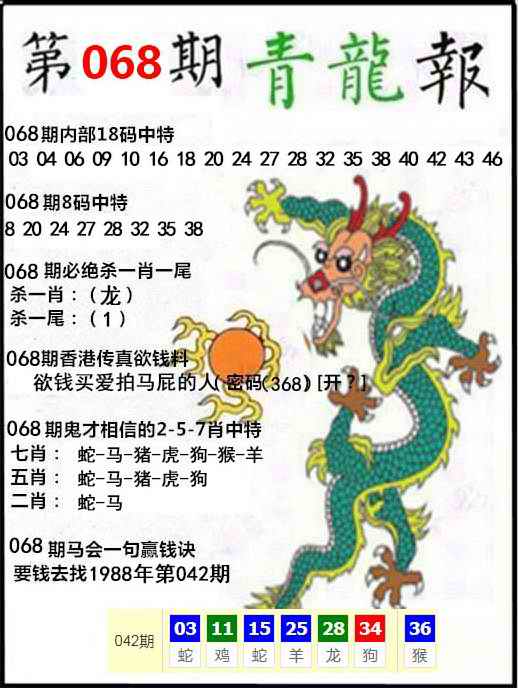 第068期 青龍報
068期内部18码中特
03 04 06 09 10 16 18 20 24 27 28 32 35 38 40 42 43 46
068期8码中特
8 20 24 27 28 32 35 38
068 期必绝杀一肖一尾
杀一肖：（龙）
杀一尾：（1）
068期香港传真欲钱料
欲钱买爱拍马屁的人(密码(368)[开?]
068期鬼才相信的2-5-7肖中特
七肖： 蛇-马-猪-虎-狗-猴-羊
五肖： 蛇-马-猪-虎-狗
二肖： 蛇-马
068 期马会一句赢钱诀
要钱去找1988年第042期
042期 03 11 15 25 28 34 36
蛇 鸡 蛇 羊 龙 狗 猴